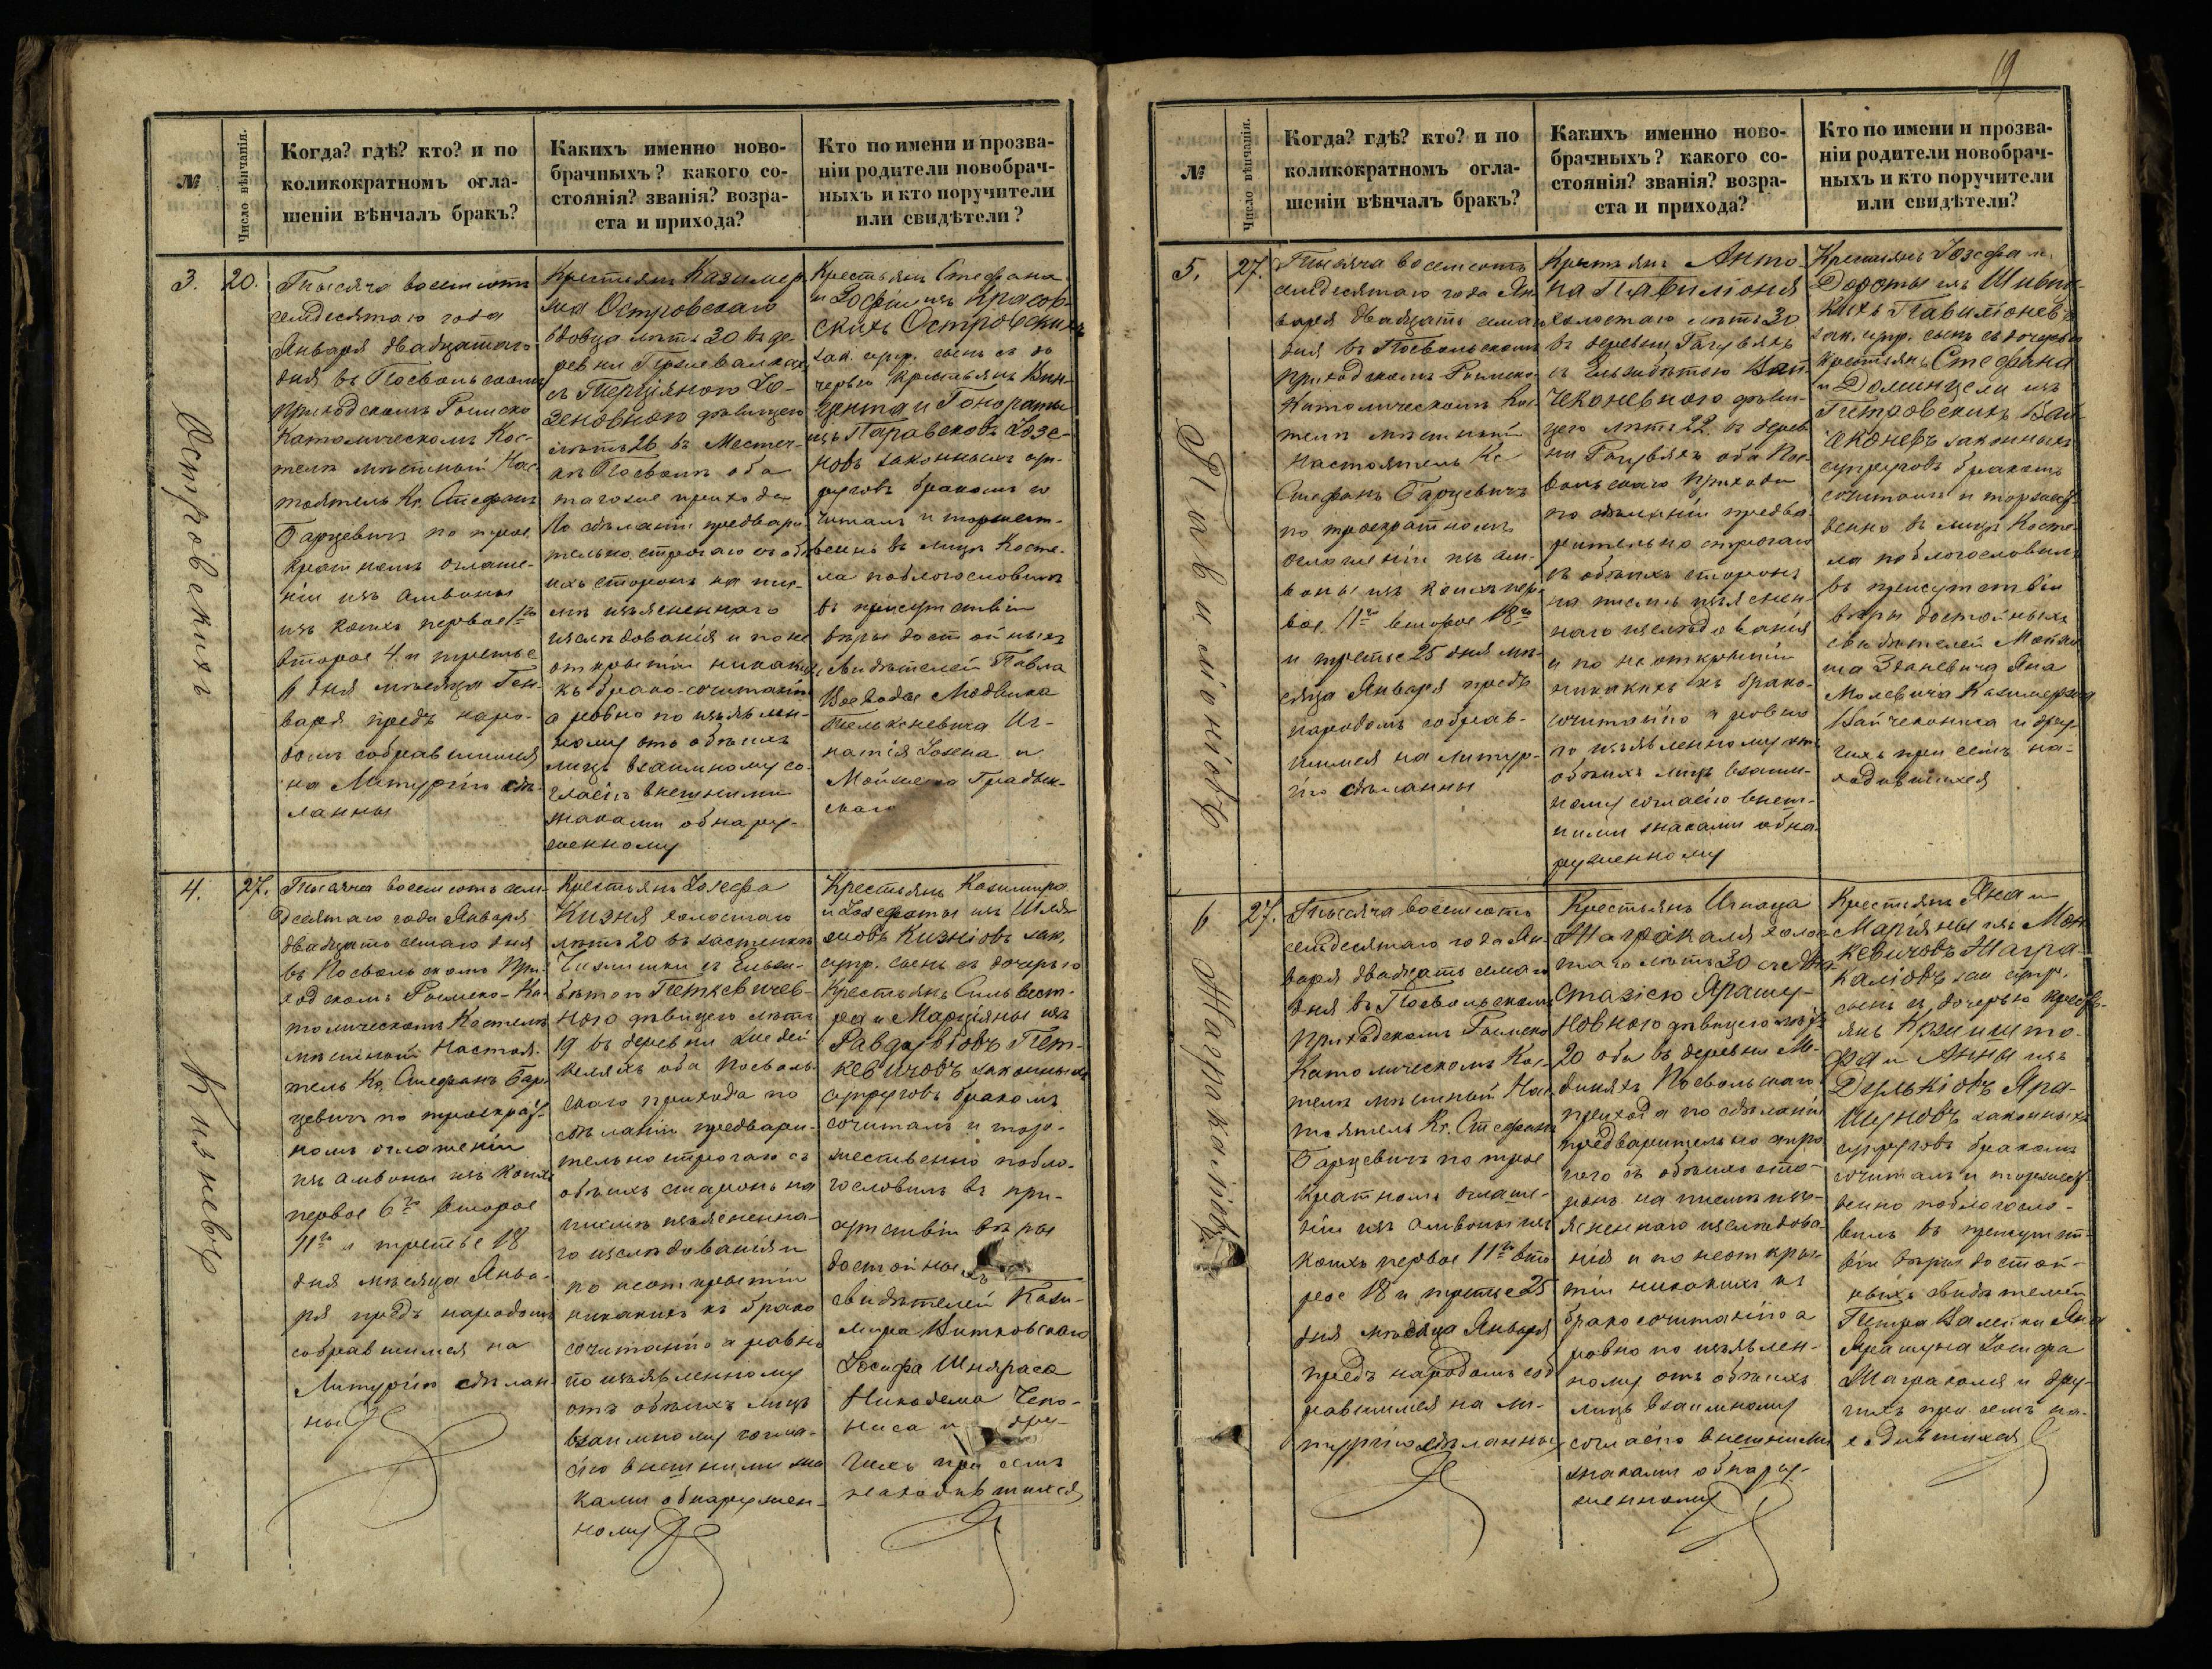 №
Число вѣнчанія.
Когда? гдѣ? кто? и по
коликократномъ огла-
шеніи вѣнчалъ бракъ?
Какихъ именно ново-
брачныхъ? какого со-
стоянія? званія? возра-
ста и прихода?
Кто по имени и прозва-
ніи родители новобрач-
ныхъ и кто поручители
или свидѣтели?
3.
20.
Островскихъ
Тысяча восемсотъ
семдесятаго года
Января двадцатаго
дня въ Посвольскомъ
приходскомъ Римско
Католическомъ Кос-
телѣ мѣстный Нас-
тоятель Кс. Стефанъ
Барцевичъ по трое
кратномъ оглаше-
ніи изъ амвоны
изъ коихъ первое 1го
второе 4 и третье
6 дня мѣсяца Ген-
варя предъ наро-
домъ собравшимся
на Литургію сдѣ-
ланны
Крестьянъ Казимер
Островскаго
вдовца лѣтъ 30 въ де-
ревни
съ
зеновною дѣвицею
лѣтъ 26 въ Местеч-
кѣ Посволѣ оба
тагожъ прихода
по сдѣланіи предвари-
тельно строгаго съ обо-
ихъ сторонъ на пис-
мѣ изъясненнаго
изслѣдованія и по не
открытіи никакихъ
къ брако-сочитанію
а ровно по изъявлен-
ному отъ обѣихъ
лицъ взаимному со-
гласію внешними
знаками обнару-
женному
Крестьянъ Стефана
и Зофіи изъ Красов-
скихъ Островскихъ
зак. супр. сынъ съ до
черью крестьянъ Вин-
цента и Гонораты
изъ Паравсковъ Юзе-
новъ законныхъ суп-
руговъ бракомъ со
читалъ и торжест-
венно въ лицѣ Косте-
ла поблогословилъ
въ присутствіи
вѣры достойныхъ
свидѣтелей Павла
Воеводы
Иг-
натія Юзена и

скаго
4.
27.
Кизневъ
Тысяча восемсотъ сем-
десятаго года Января
двадцать семаго дня
въ Посвольскомъ При-
ходскомъ Римско-Ка-
толическомъ Костелѣ
мѣстный Настоя-
тель Кс. Стефанъ Бар-
цевичъ по троекрат-
номъ оглашеніи
изъ амвоны изъ коихъ
первое 6го второе
11го и третье 18
дня мѣсяца Янва-
ря предъ народомъ
собравшимся на
Литургію сдѣлан-
ны
Крестьянъ Іозефа
Кизня холостаго
лѣтъ 20 въ застенкѣ
съ Ельжи-
бѣтою Петкевичев-
ною дѣвицею лѣтъ
19 въ деревни
оба Посволь-
скаго прихода по
сдѣланіи предвари-
тельно строгаго съ
обѣихъ старонъ на
писмѣ изъясненна-
го изслѣдованія и
по неоткрытіи
никакихъ къ брако
сочитанію а равно
по изъявленному
отъ обѣихъ лицъ
взаимному согла-
сію внешними зна
ками обнаружен-
ному
Крестьянъ Казимира
и Іозефаты изъ
Кизніовъ зак.
супр. сынъ съ дочерью
Крестьянъ Сильвест-
ра и Марціяны изъ
Пет-
кевичовъ законныхъ
супруговъ бракомъ
сочиталъ и тор-
жественно побло-
гословилъ въ при-
сутствіи вѣры
достойныхъ
свидѣтелей Кази-
мира Витковскаго
Іосифа Шнараса
Никодема Чепо-
ниса и дру-
гихъ при семъ
находившихся
19
№
Число вѣнчанія.
Когда? гдѣ? кто? и по
коликократномъ огла-
шеніи вѣнчалъ бракъ?
Какихъ именно ново-
брачныхъ? какого со-
стоянія? званія? возра-
ста и прихода?
Кто по имени и прозва-
ніи родители новобрач-
ныхъ и кто поручители
или свидѣтели?
5.
27.
Павиліоніовъ
Тысяча восемсотъ
семдесятаго года Ян-
варя двадцать семаго
дня въ Посвольскомъ
приходскомъ Римско
Католическомъ Кос-
телѣ мѣстный
Настоятель Кс
Стефанъ Барцевичъ
по троекратномъ
оглашеніи изъ ам-
воны изъ коихъ пер-
вое 11го второе 18го
и третье 25 дня мѣ-
сяца Января предъ
народомъ собрав-
шимся на Литур-
гію сдѣланны
Крестьянъ Анто-
на Павиліоня
холостаго лѣтъ 30
въ деревни
съ Эльжбѣтою Вай-
чеконевною дѣви-
цею лѣтъ 22 въ дерев
ни оба Пос-
вольскаго прихода
по сдѣланіи предва-
рительно строгаго
съ обѣихъ сторонъ
на писмѣ изъяснен
наго изслѣдованія
и по не открытіи
никакихъ къ брако-
сочитанію а ровно
по изъявленному отъ
обѣихъ лицъ взаим-
ному согласію внеш-
ними знаками обна-
руженному
Крестьянъ Іозефа и
Дороты изъ
Павиліоневъ
зак. супр. сынъ съ дочерью
крестьянъ Стефана
и Доминцели изъ
Петровскихъ Вай
чеконевъ законныхъ
супруговъ бракомъ
сочиталъ и торжест
венно въ лицѣ Косте-
ла поблогословилъ
въ присутствіи
вѣры достойныхъ
свидѣтелей
Яна
Казимера
Вайчекониса и дру-
гихъ при семъ на-
ходившихся
6
27.
Тысяча восемсотъ
семдесятаго года Ян-
варя двадцать семаго
дня въ Посвольскомъ
приходскомъ Римско
Католическомъ Кос-
телѣ мѣстный Нас-
тоятель Кс. Стефанъ
Барцевичъ по трое
кратномъ оглаше-
ніи изъ амвоны изъ
коихъ первое 11го вто
рое 18 и третье 25
дня мѣсяца Января
предъ народомъ соб
равшимся на ли-
тургію сдѣланны
Крестьянъ Игнаца
холос
таго лѣтъ 30 съ Ана
стазіею Ярашу-
новною дѣвицею лѣтъ
20 оба въ деревни
Посвольскаго
прихода по сдѣланіи
предварительно стро
гого съ обѣихъ сто-
ронъ на писмѣ изъ-
ясненнаго изслѣдова-
нія и по неоткры-
тіи никакихъ къ
брако сочитанію а
ровно по изъявлен-
ному отъ обѣихъ
лицъ взаимному
согласію внешними
знаками обнару-
женному
Крестьянъ Яна и
Маріяны изъ Мон
кевичовъ
зак супр.
сынъ съ дочерью кресть-
янъ Кришшто-
фа и Анны изъ
Яра-
шуновъ законныхъ
супруговъ бракомъ
сочиталъ и торжест
венно поблогосло-
вилъ въ присутст-
віи вѣры достой-
ныхъ свидѣтелей
Петра Яна
Ярашуна Іосифа
и дру-
гихъ при семъ на-
ходившихся